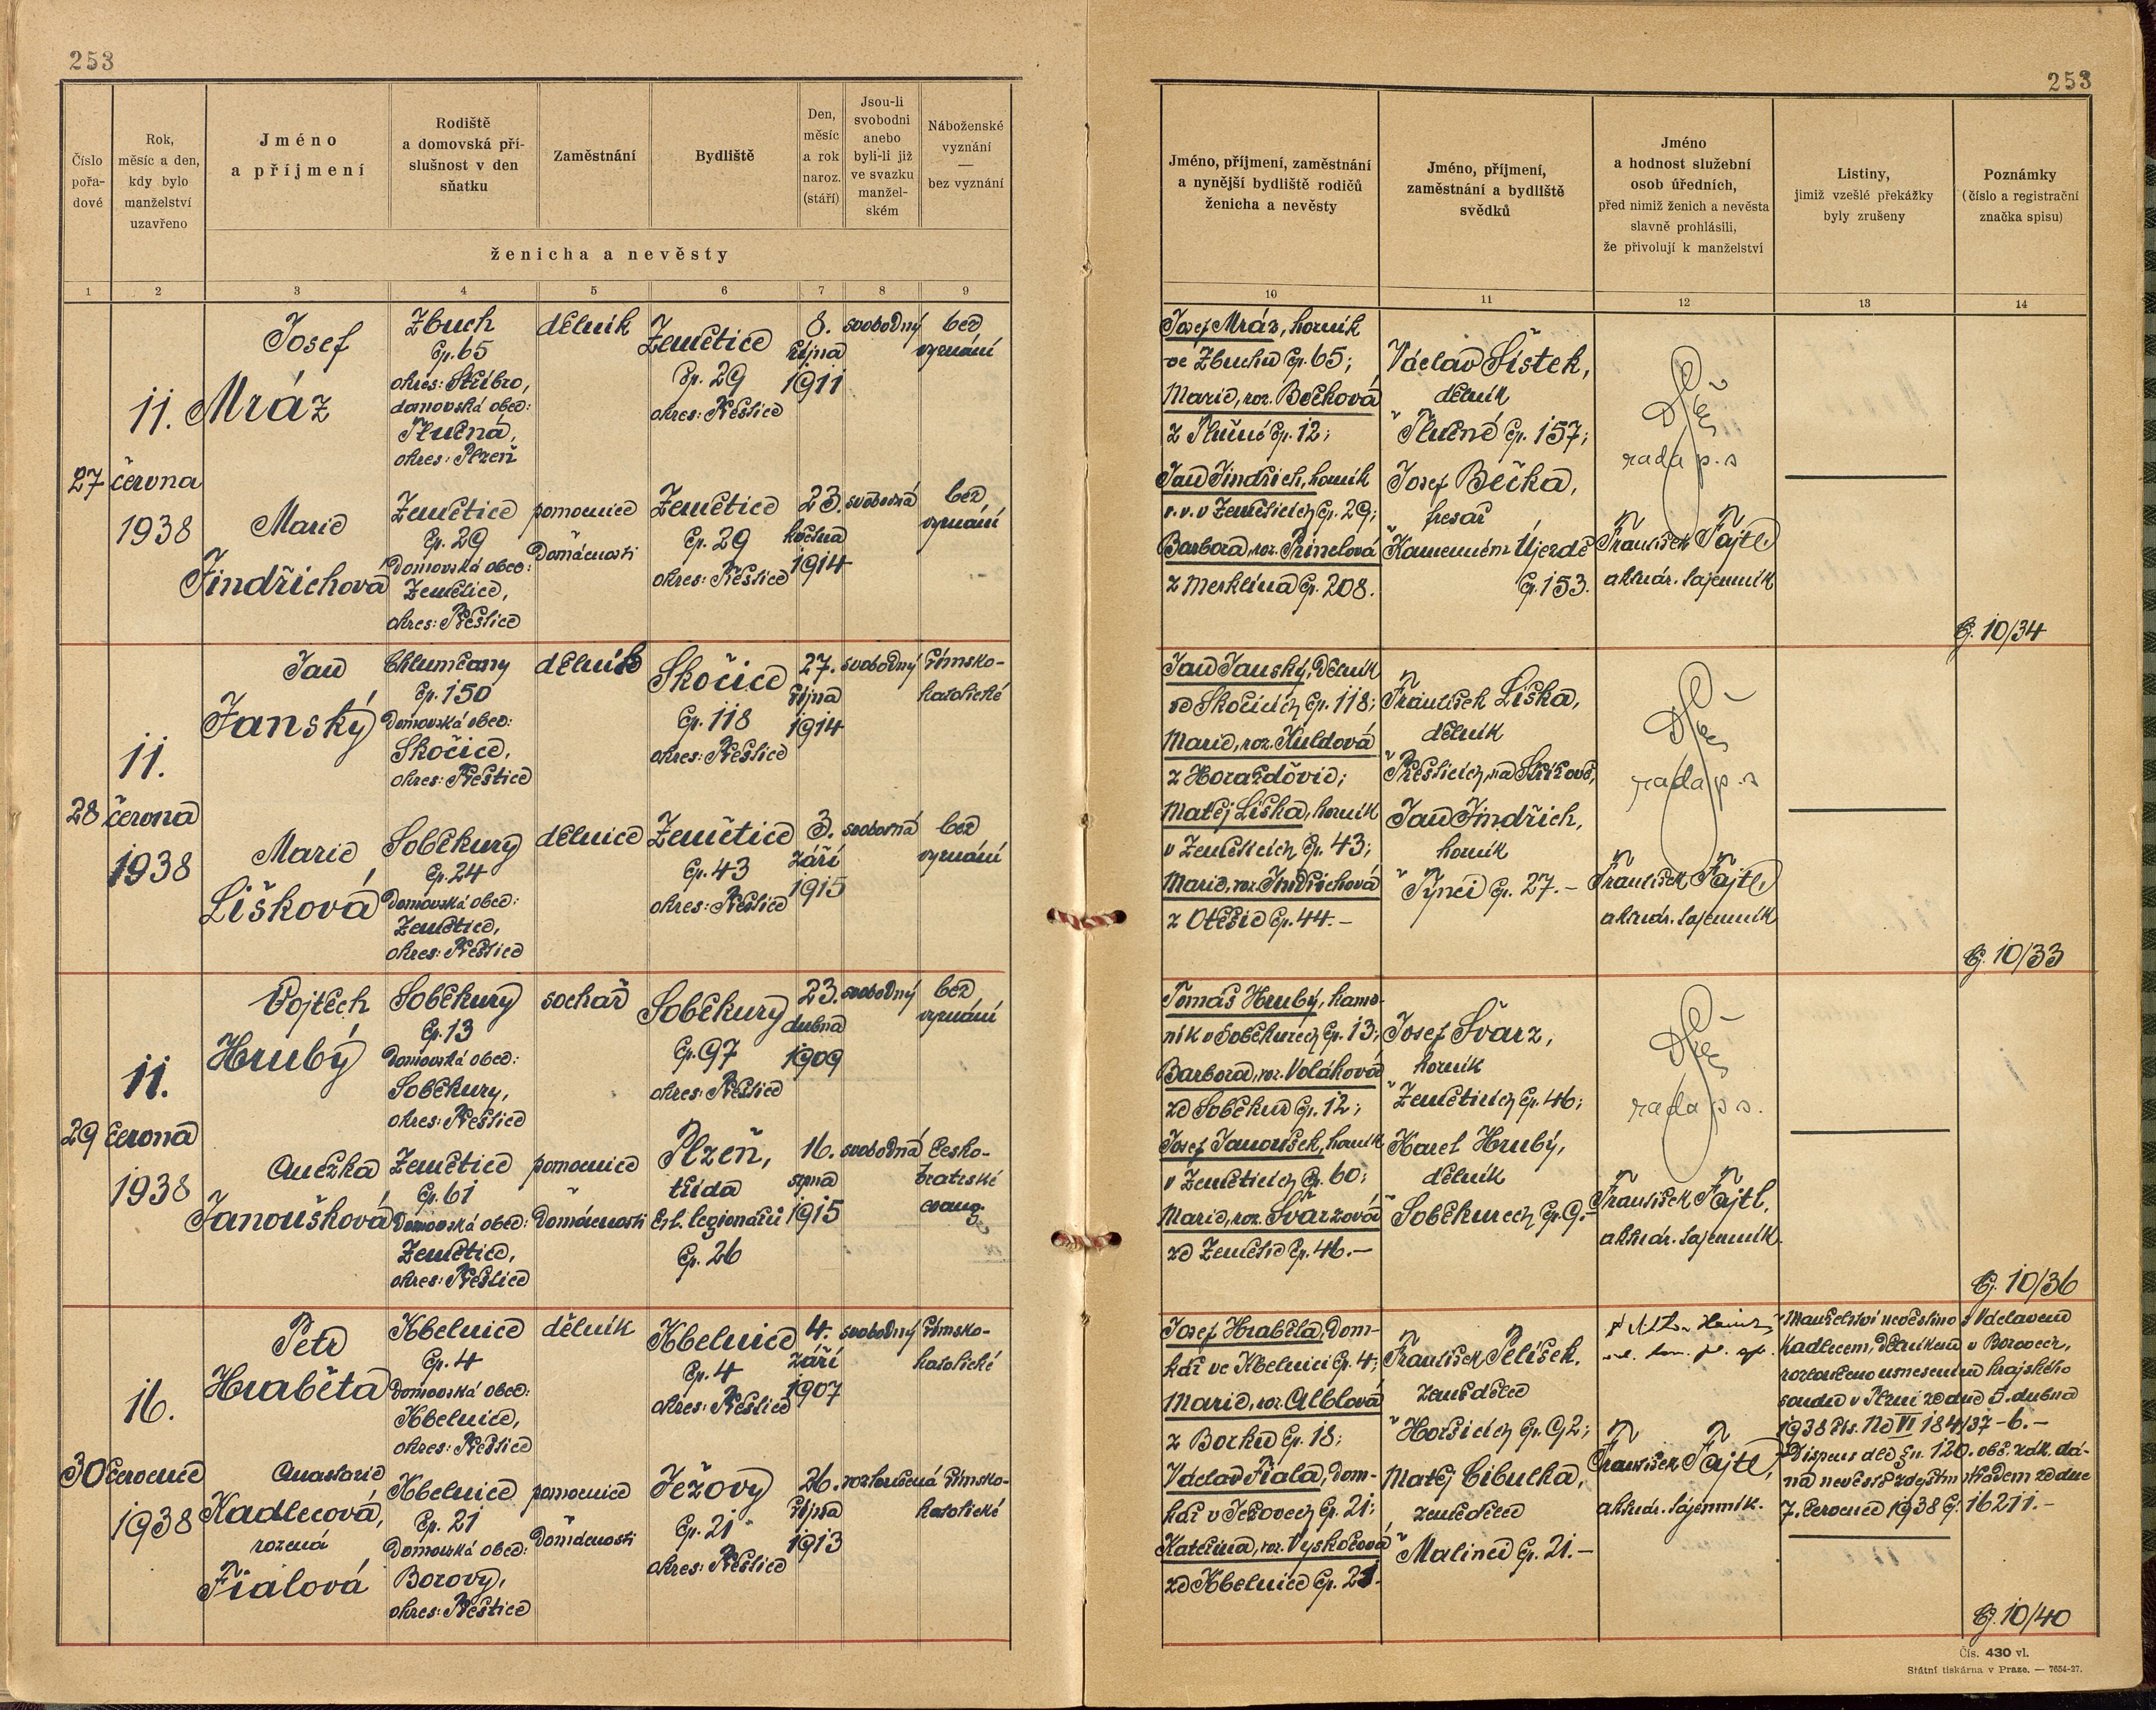 253
Číslo pořa- dové
Rok, měsíc a den, kdy bylo manželství uzavřeno
Jméno a příjmení
Rodiště a domovská pří- slušnost v den sňatku
Zaměstnání
Bydliště
Den, měsíc a rok naroz. (stáří)
Jsou-li svobodni anebo byli-li již ve svazku manžel- ském
Náboženské vyznání — bez vyznání
ženicha a nevěsty
1 2 3 4 5 6 7 8 9
27
11.
června
1938
Josef
Mráz
Zbuch
čp. 65
okres: Stříbro,
domovská obec:
Tlučná,
okres: Plzeň
dělník
Zemětice
čp. 29
okres: Přeštice
8.
října
1911
svobodný
bez
vyznání
Marie
Jindřichová
Zemětice
čp. 29
Domovská obec:
Zemětice,
okres: Přeštice
pomocnice
v
domácnosti
Zemětice
čp. 29
okres: Přeštice
23.
května
1914
svobodná
bez
vyznání
28
11.
června
1938
Jan
Janský
Chlumčany
čp. 150
Domovská obec:
Skočice,
okres: Přeštice
dělník
Skočice
čp. 118
okres: Přeštice
27.
října
1914
svobodný
římsko-
katolické
Marie
Lišková
Soběkury
čp. 24
Domovská obec:
Zemětice,
okres: Přeštice
dělnice
Zemětice
čp. 43
okres: Přeštice
3.
září
1915
svobodná
bez
vyznání
29
11.
června
1938
Vojtěch
Hrubý
Soběkury
čp. 13
Domovská obec:
Soběkury,
okres: Přeštice
sochař
Soběkury
čp. 97
okres: Přeštice
23.
dubna
1909
svobodný
bez
vyznání
Anežka
Janoušková
Zemětice
čp. 61
Domovská obec:
Zemětice,
okres: Přeštice
pomocnice
v
domácnosti
Plzeň,
třída
čsl. legionářů
čp. 26
16.
srpna
1915
svobodná
česko-
bratrské
evang.
30
16.
července
1938
Petr
Hraběta
Kbelnice
čp. 4
Domovská obec:
Kbelnice,
okres: Přeštice
dělník
Kbelnice
čp. 4
okres: Přeštice
4.
září
1907
svobodný
římsko-
katolické
Anastazie
Kadlecová,
rozená
Fialová
Kbelnice
čp. 21
Domovská obec:
Borovy,
okres: Přeštice
pomocnice
v
domácnosti
Ježovy
čp. 21
okres: Přeštice
26.
října
1913
rozloučená
římsko-
katolické
253
Jméno, příjmení, zaměstnání a nynější bydliště rodičů ženicha a nevěsty
Jméno, příjmení, zaměstnání a bydliště svědků
Jméno a hodnost služební osob úředních, před nimiž ženich a nevěsta slavně prohlásili, že přivolují k manželství
Listiny, jimiž vzešlé překážky byly zrušeny
Poznámky (číslo a registrační značka spisu)
10 11 12 13 14
Josef Mráz, horník
ve Zbuchu čp. 65;
Marie, roz. Bečková
z Tlučné čp. 12;
Jan Jindřich, horník
v. v. v Zeměticích čp. 29;
Barbora, roz.
z Merklína čp. 208.
Václav Šístek,
dělník
v Tlučné čp. 157;
Josef Bečka,
fresař
v Kamenném Újezdě
čp. 153.
rada p. s.
František Fajtl,
aktuár. tajemník
čj. 10/34
Jan Janský, dělník
ve Skočicích čp. 118;
Marie, roz. Kuldová
z Horažďovic;
Matěj Liška, horník
v Zeměticích čp. 43;
Marie, roz. Jindřichová
z Otěšic čp. 44.—
František Liška,
dělník
v Přešticích,
Jan Jindřich,
horník
v Týnci čp. 27.—
rada p. s.
František Fajtl,
aktuár. tajemník
čj. 10/33
Tomáš Hrubý, kame-
ník v Soběkurech čp. 13;
Barbora, roz. Voláková
ze Soběkur čp. 12;
Josef Janoušek, horník
v Zeměticích čp. 60;
Marie, roz. Švarzová
ze Zemětic čp. 46.—
Josef Švarz,
horník
v Zeměticích čp. 46;
Karel Hrubý,
dělník
v Soběkurech čp. 9.—
rada p. s.
František Fajtl,
aktuár. tajemník.
čj. 10/36
Josef Hraběta, dom-
kář ve Kbelnici čp. 4;
Marie, roz. Alblová
z Borku čp. 18;
Václav Fiala, dom-
kář v Ježovech čp. 21;
Kateřina, roz. Vyskočová
ze Kbelnice čp. 21.
František Pelíšek,
zemědělec
v Horšicích čp. 92;
Matěj Cibulka,
zemědělec
v Malinci čp. 21.—
František Fajtl,
aktuár. tajemník.
Manželství nevěstino s Václavem
Kadlecem, dělníkem v Borovech,
rozloučeno usnesením krajského
soudu v Plzni ze dne 5. dubna
1938 čís. Nc VI 184/37-6.—
Dispens dle § n. 120. obč. zák. dá-
na nevěstě zdejším úřadem ze dne
7. července 1938 čj. 16211.—
čj. 10/40
Čís. 430 vl.
Státní tiskárna v Praze. — 7654-37.